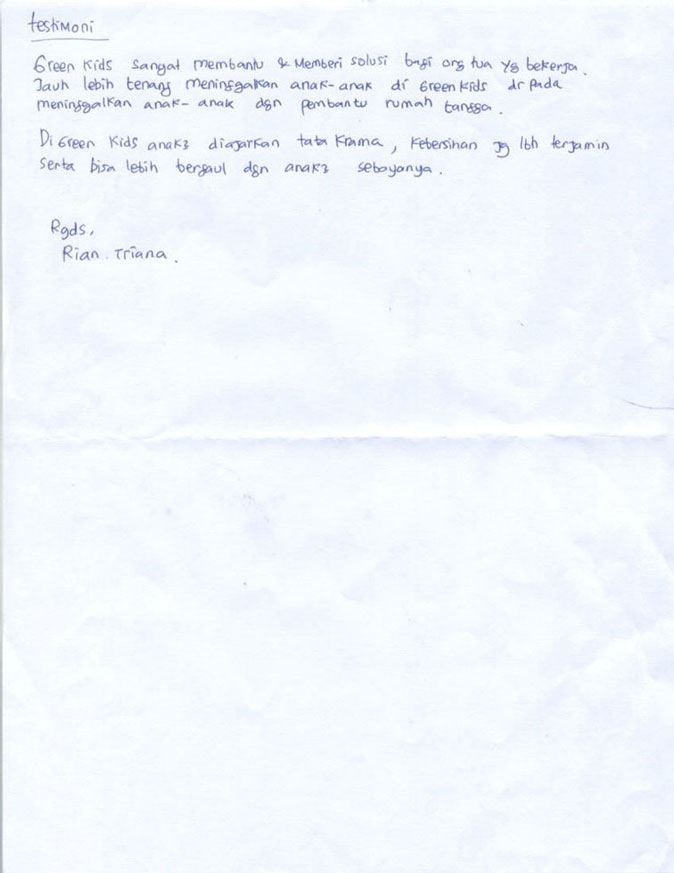 testimoni
Green Kids sangat membantu & Memberi solusi bagi org tua yg bekerja.
Jauh lebih tenang meninggalkan anak-anak di Green Kids dr pada
meninggalkan anak-anak dgn pembantu rumah tangga.
Di Green Kids anak2 diajarkan tata krama, kebersihan jg lbh terjamin
serta bisa lebih bergaul dgn anak2 sebayanya.
Rgds,
Rian Triana.